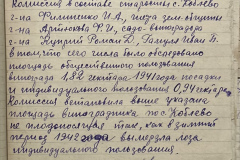 Комиссия в составе старосты с. Коблево
г-на Филипенко И.А., глава зем. общины
г-на Арнаутова Ф. садо-виноградаря
г-на Куприй Роман Д.
в том, что сего числа было обследовано
площадь общественного пользования
винограда 1,82 гектара 1941 года посадки
и индивидуального пользования 0,94 гектаре
Комиссия установила выше указана
площадь виноградника пос. Коблево
не плодоносящая так, как в зимний
период 1942 вымерзла лоза
индивидуального пользования